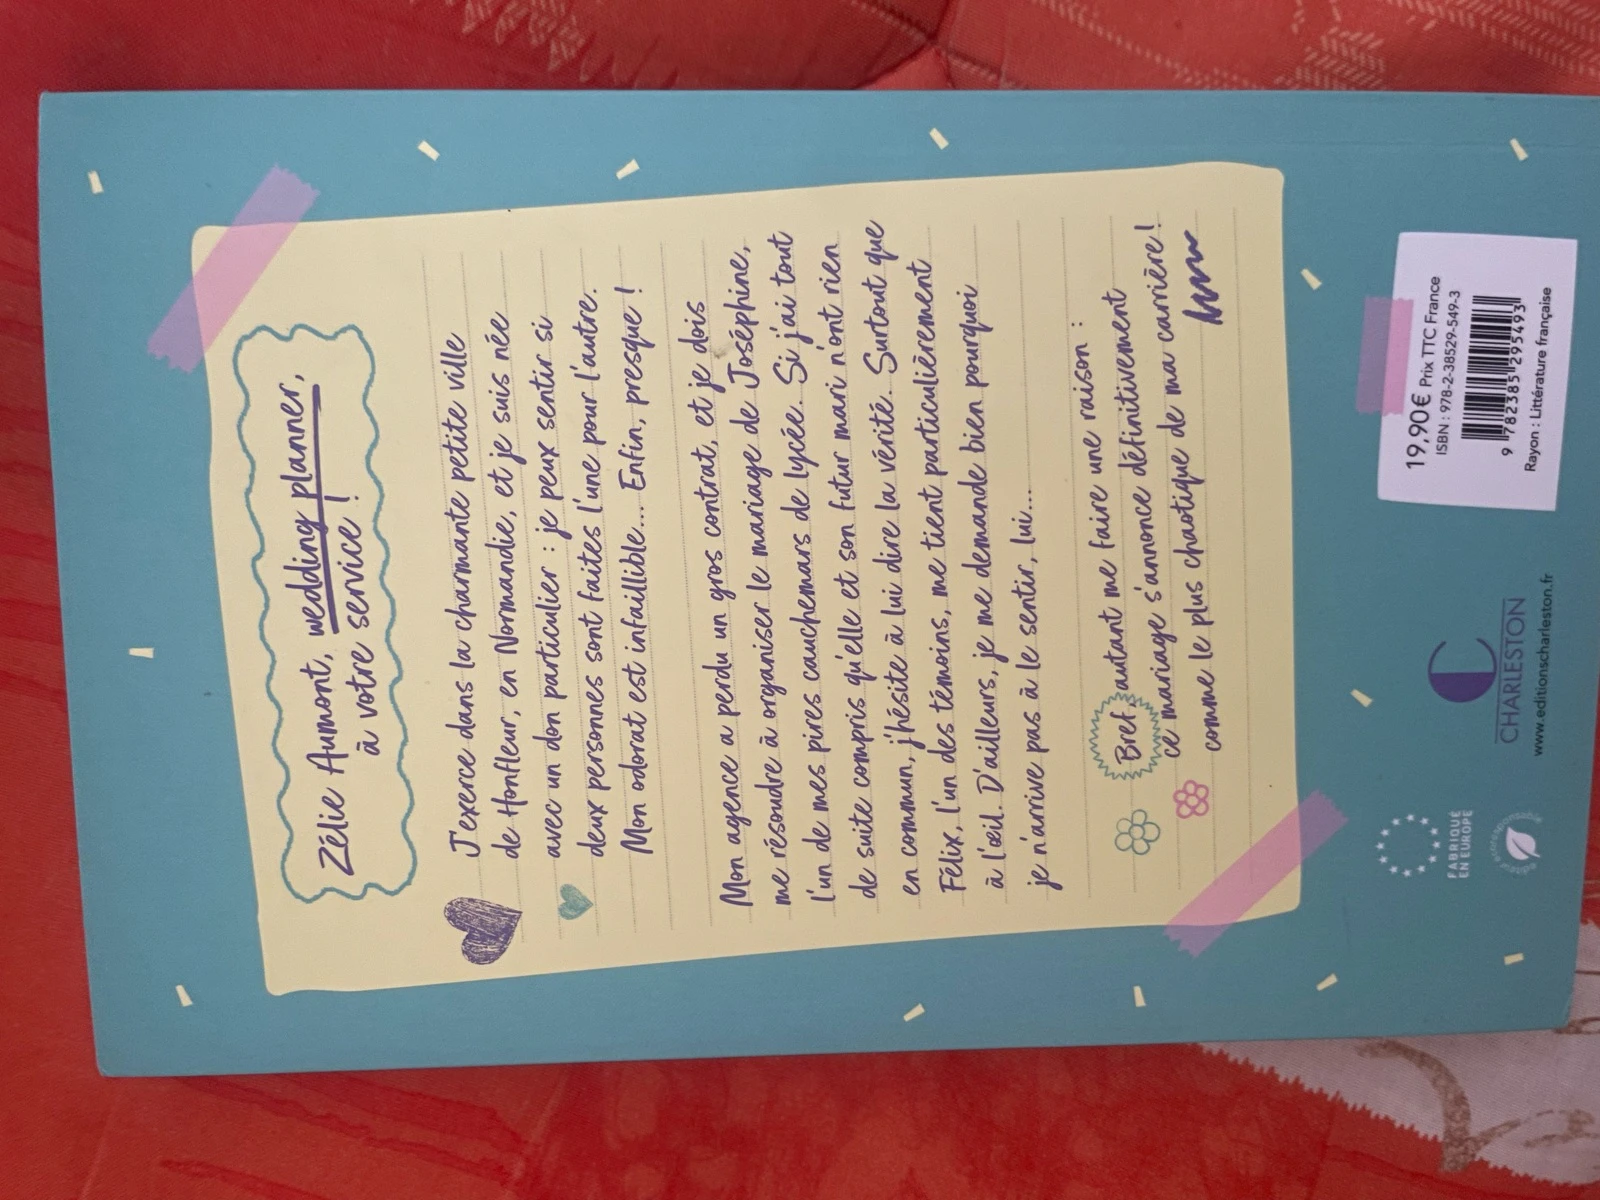 Zélie Aumont, wedding planner,
à votre service !
J'exerce dans la charmante petite ville
de Honfleur, en Normandie, et je suis née
avec un don particulier : je peux sentir si
deux personnes sont faites l'une pour l'autre.
Mon odorat est infaillible... Enfin, presque !
Mon agence a perdu un gros contrat, et je dois
me résoudre à organiser le mariage de Joséphine,
l'un de mes pires cauchemars de lycée. Si j'ai tout
de suite compris qu'elle et son futur mari n'ont rien
en commun, j'hésite à lui dire la vérité. Surtout que
Félix, l'un des témoins, me tient particulièrement
à l'œil. D'ailleurs, je me demande bien pourquoi
je n'arrive pas à le sentir, lui...
Bref, autant me faire une raison :
ce mariage s'annonce définitivement
comme le plus chaotique de ma carrière !
FABRIQUÉ
EN EUROPE
éditeur écoresponsable
CHARLESTON
www.editionscharleston.fr
19,90€ Prix TTC France
ISBN : 978-2-38529-549-3
9 782385 295493
Rayon : Littérature française